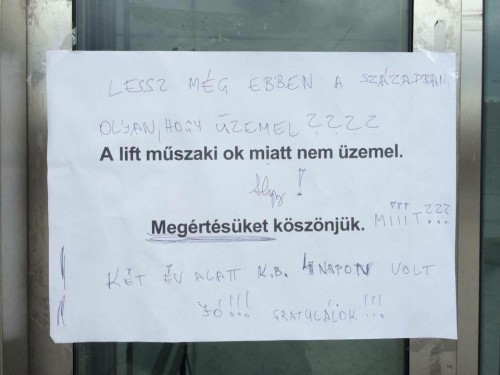 LESSZ MÉG EBBEN A SZÁZADBAN
OLYAN, HOGY ÜZEMEL ????
A lift műszaki ok miatt nem üzemel.
!
Megértésüket köszönjük. MIIIT???...
KÉT ÉV ALATT K.B. 4 NAPON VOLT
JÓ!!! GRATULÁLOK!!!